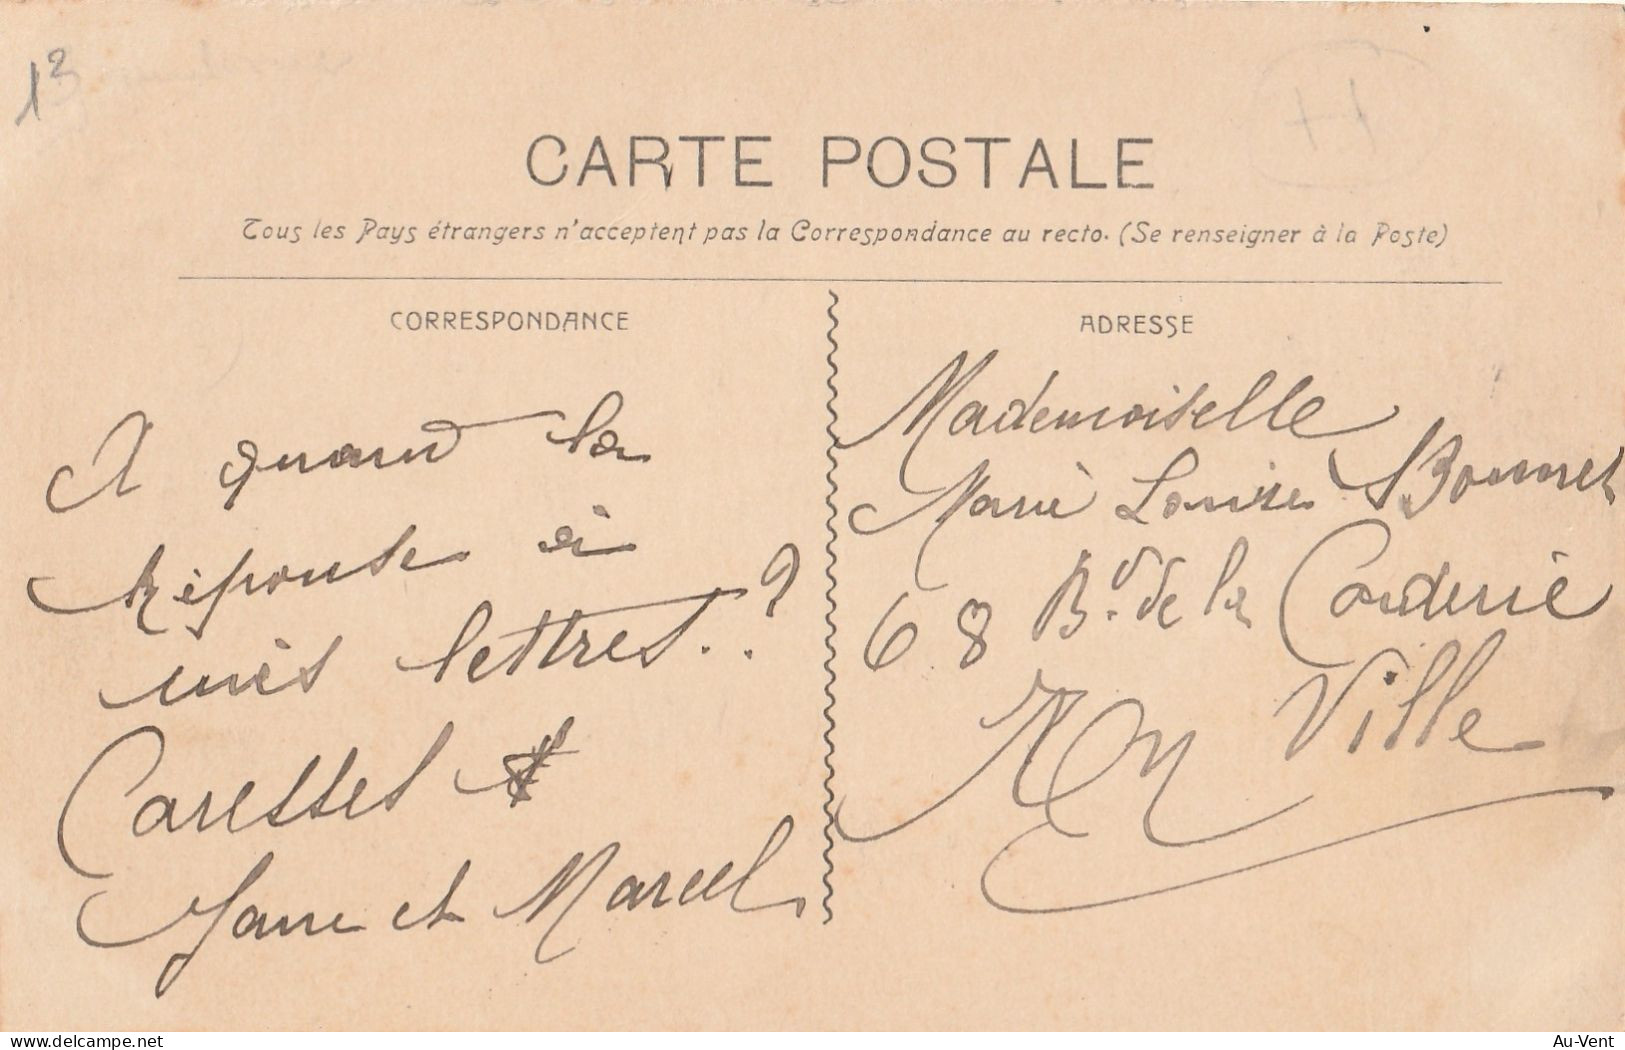 13
H
CARTE POSTALE
Tous les Pays étrangers n'acceptent pas la Correspondance au recto. (Se renseigner à la Poste)
CORRESPONDANCE
A quand la
réponse à
mes lettres..?
Caresses
Jane et Marcel
ADRESSE
Mademoiselle
Marie Louise Bonnet
68 Bd. de la Corderie
En Ville
delcampe.net
Au-Vent